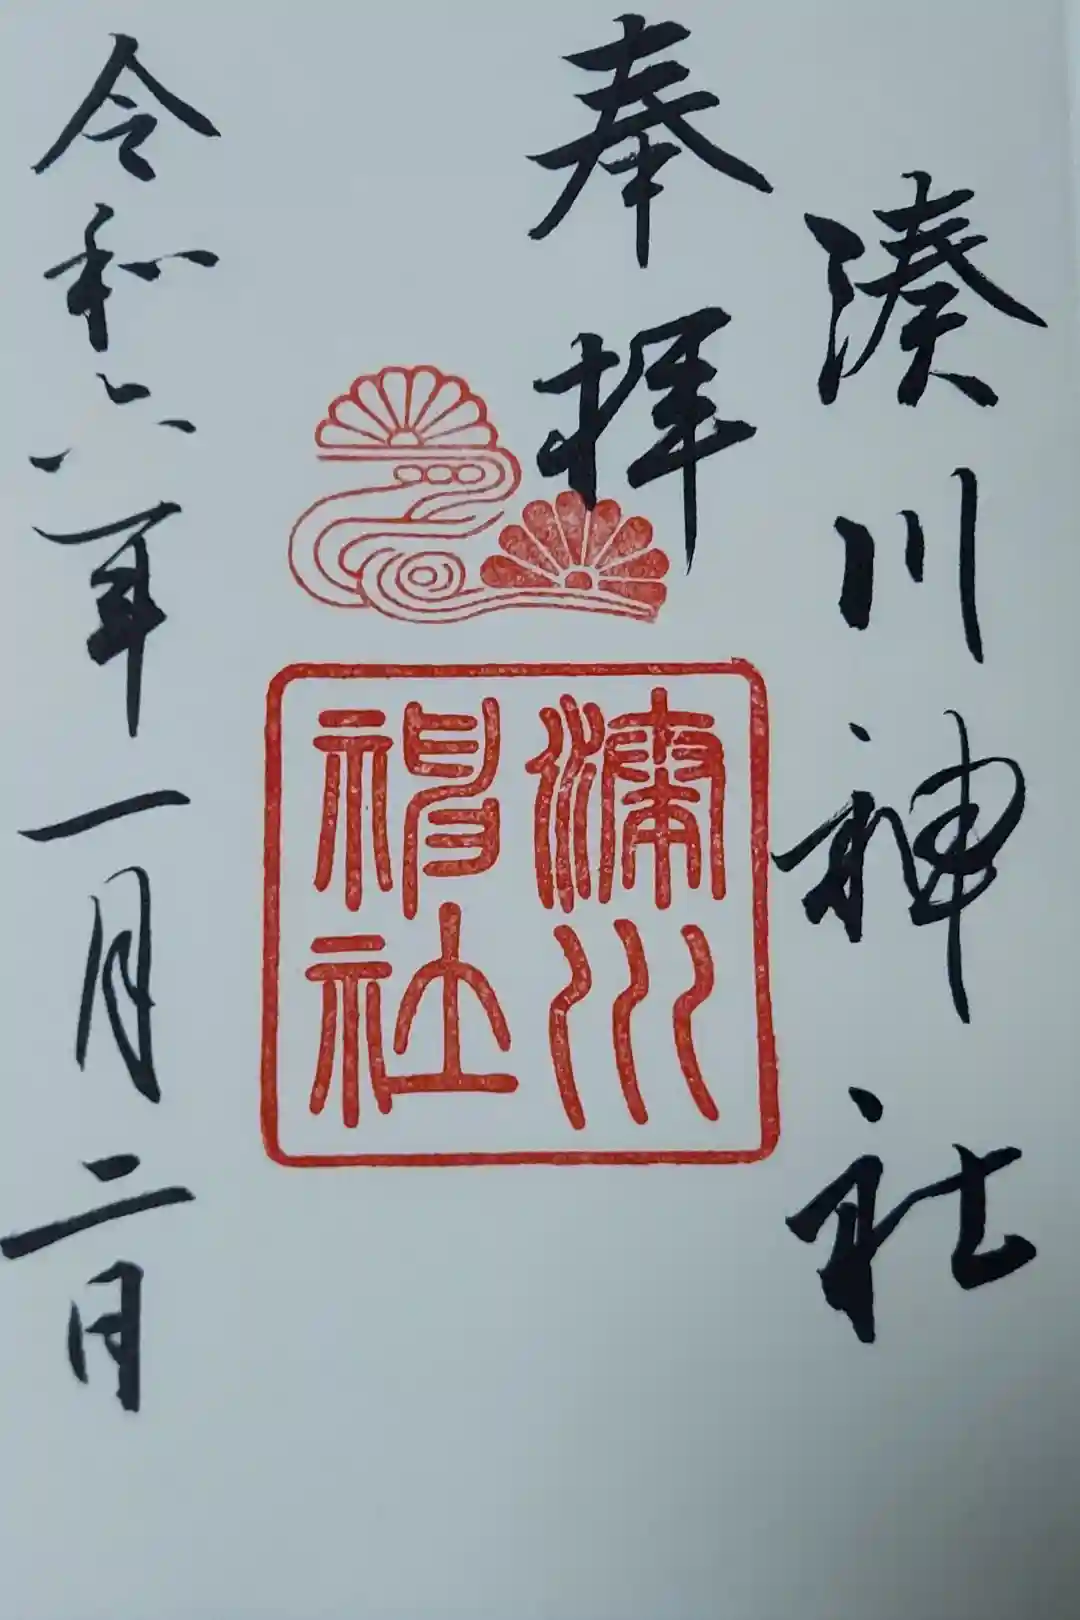 湊川神社
奉拝
湊川
神社
令和六年一月二日